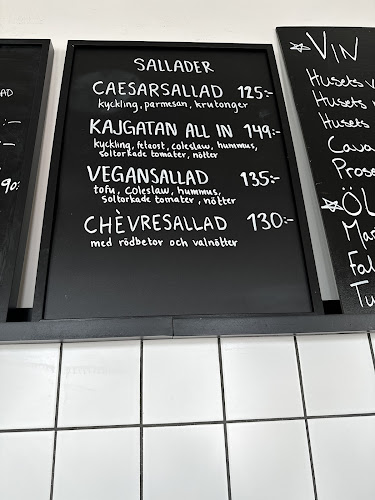 SALLADER
CAESARSALLAD 125:-
kyckling, parmesan, krutonger
KAJGATAN ALL IN 149:-
kyckling, fetaost, coleslaw, hummus,
soltorkade tomater, nötter
VEGANSALLAD 135:-
tofu, coleslaw, hummus,
soltorkade tomater, nötter
CHÈVRESALLAD 130:-
med rödbetor och valnötter
AD
:-
:-
90:
VIN
Husets
Husets
Husets
Cava
Prose
ÖL